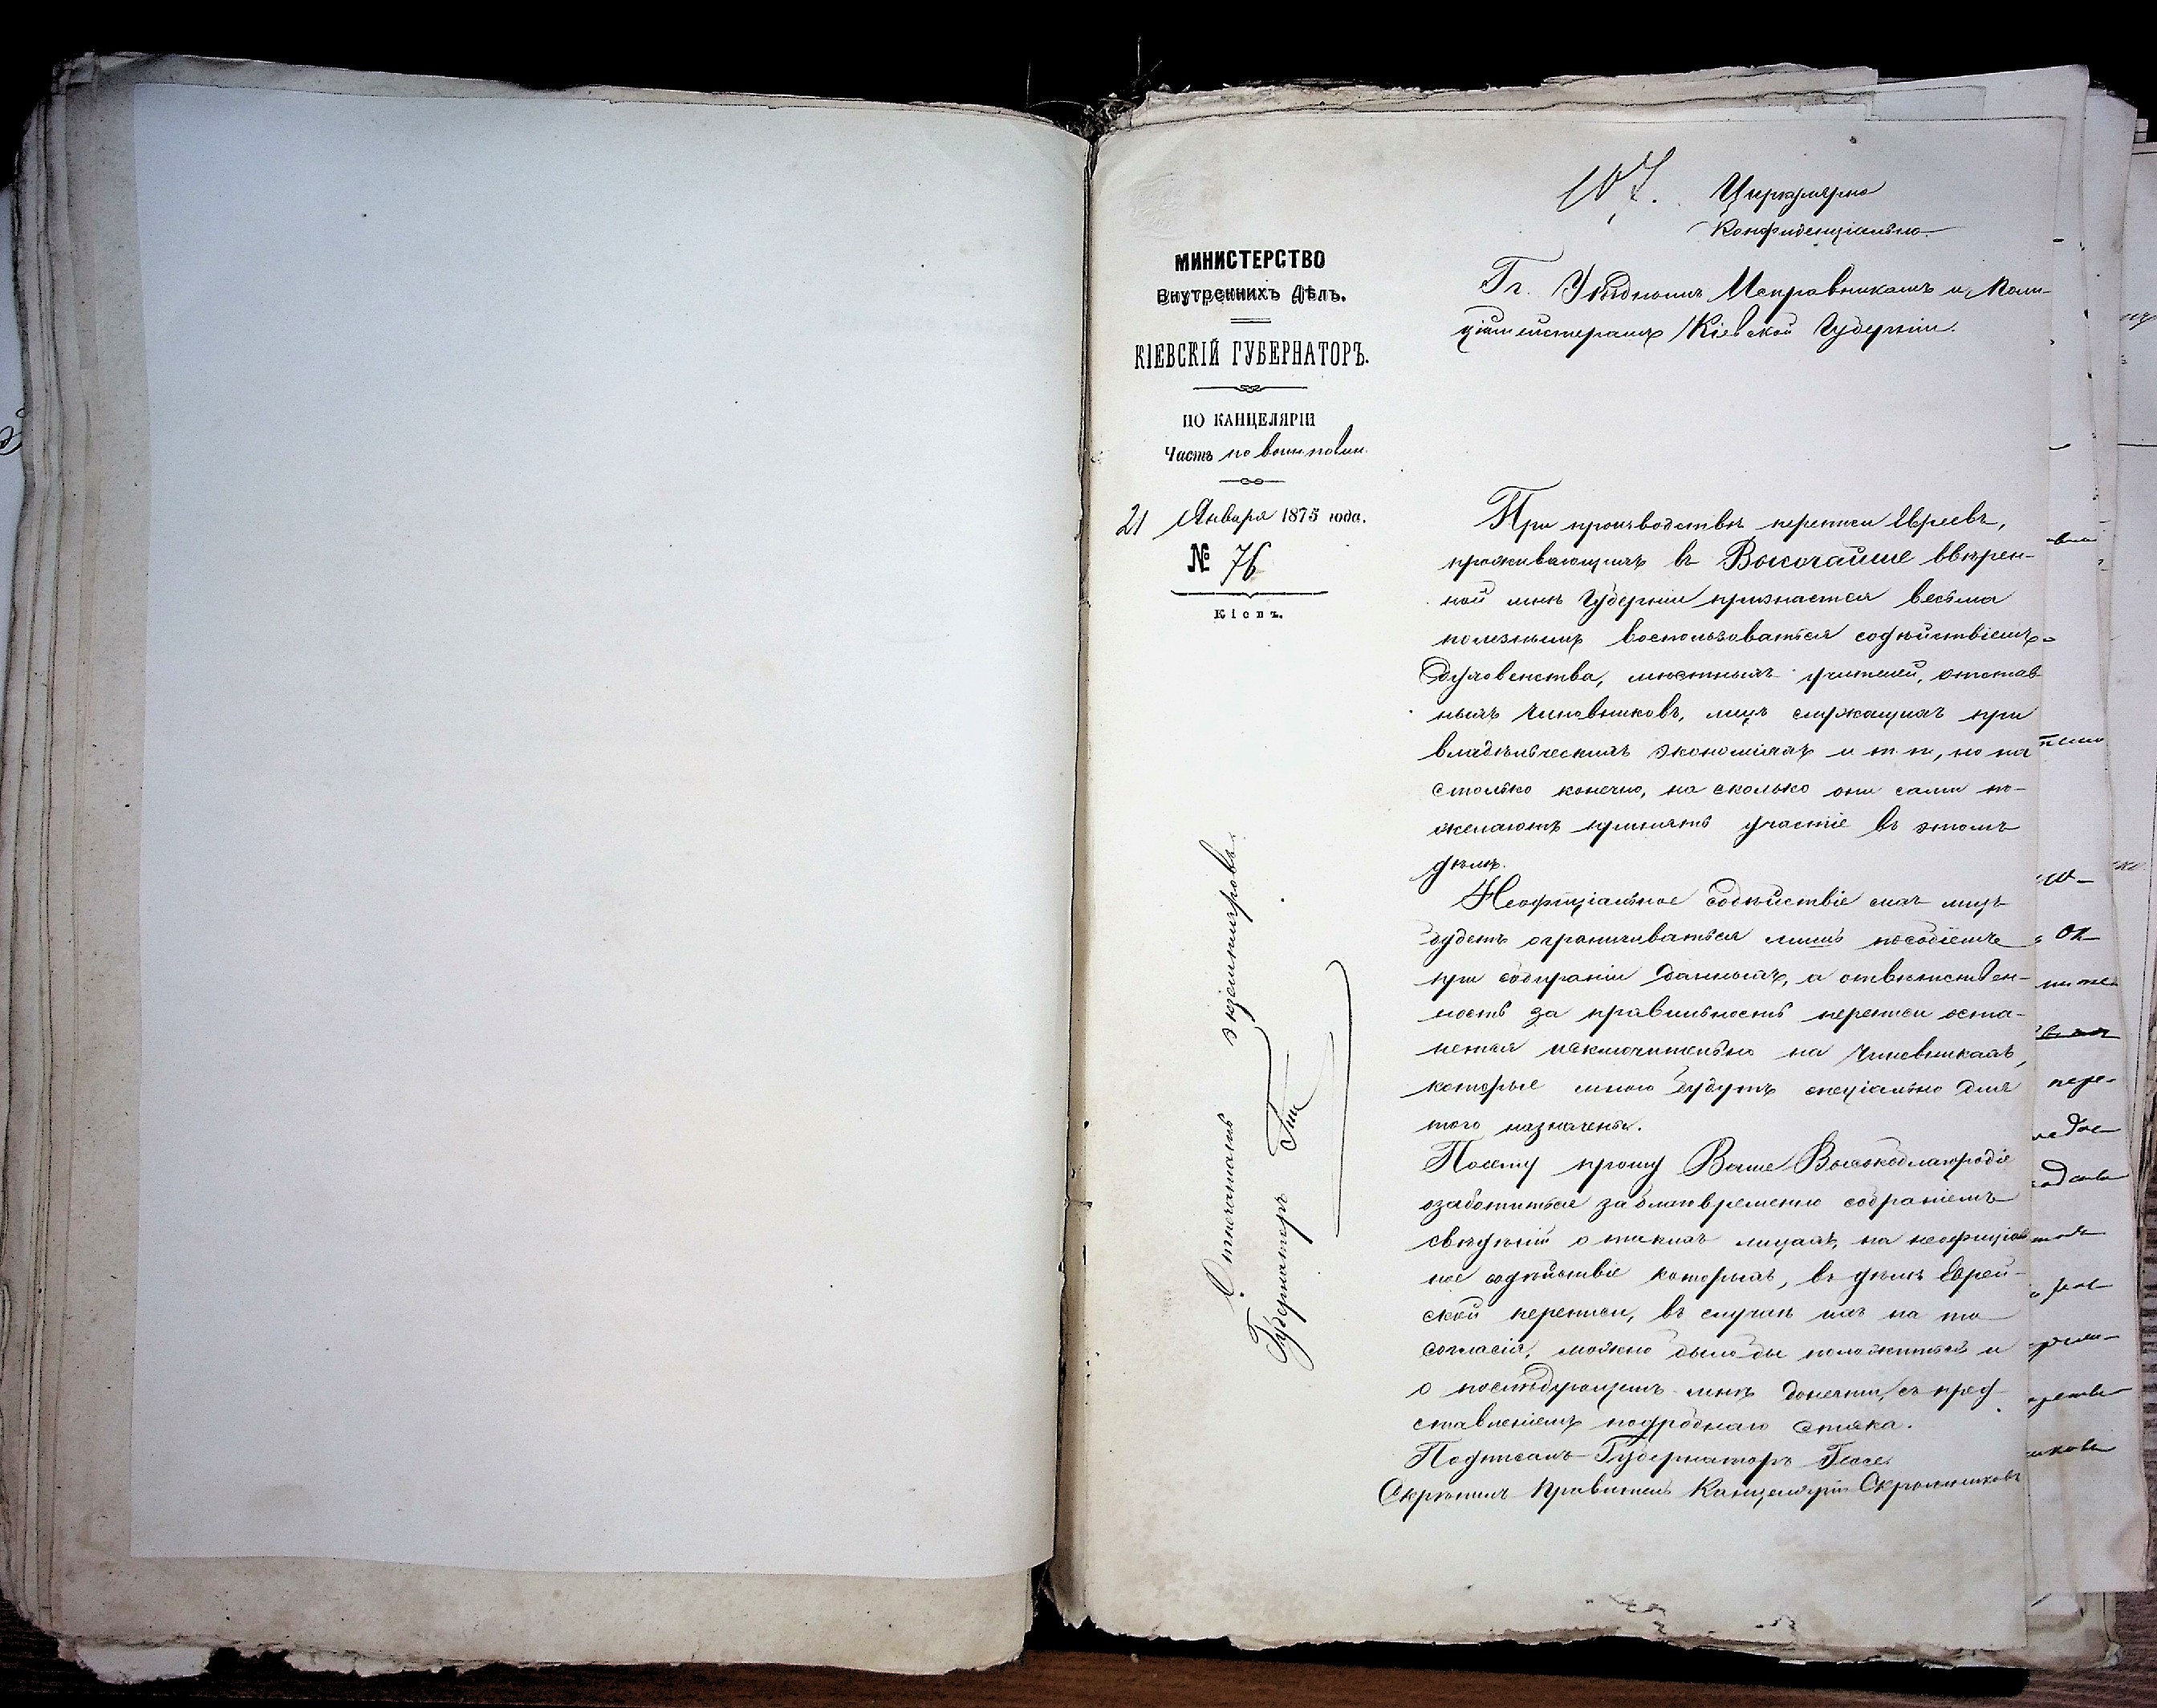 107.
Циркулярно
Конфиденціально
МИНИСТЕРСТВО
Внутреннихъ Дѣлъ.
КІЕВСКІЙ ГУБЕРНАТОРЪ.
ПО КАНЦЕЛЯРІИ
Часть по воин. повин.
21 Января 1875 года.
№ 76
Кіевъ.
Гг. Уѣзднымъ Исправникамъ и Поли-
ціймейстерамъ Кіевской Губерніи.
При производствѣ переписи Евреевъ,
проживающихъ въ Высочайше ввѣрен-
ной мнѣ Губерніи признается весьма
полезнымъ воспользоваться содѣйствіемъ
Духовенства, мѣстныхъ учителей, отстав
ныхъ чиновниковъ, лицъ служащихъ при
владѣльческихъ экономіяхъ и т. п., но на
столько конечно, на сколько они сами по-
желаютъ принять участіе въ этомъ
дѣлѣ.
Неофиціальное содѣйствіе сихъ лицъ
будетъ ограничиваться лишь пособіемъ
при собираніи данныхъ, а отвѣтствен-
ность за правильность переписи оста-
нется исключительно на чиновникахъ,
которые мною будутъ спеціально для
того назначены.
Посему прошу Ваше Высокоблагородіе
озаботиться заблаговременно собраніемъ
свѣдѣній о такихъ лицахъ, на неофиціаль
ное содѣйствіе которыхъ, въ дѣлѣ Еврей-
ской переписи, въ случаѣ ихъ на то
согласія, можно было бы положиться и
о послѣдующемъ мнѣ донести, съ пред
ставленіемъ подробнаго списка.
Подписалъ Губернаторъ Гессе
Скрѣпилъ Правитель Канцеляріи
Отпечатать экземпляровъ.
Губернаторъ